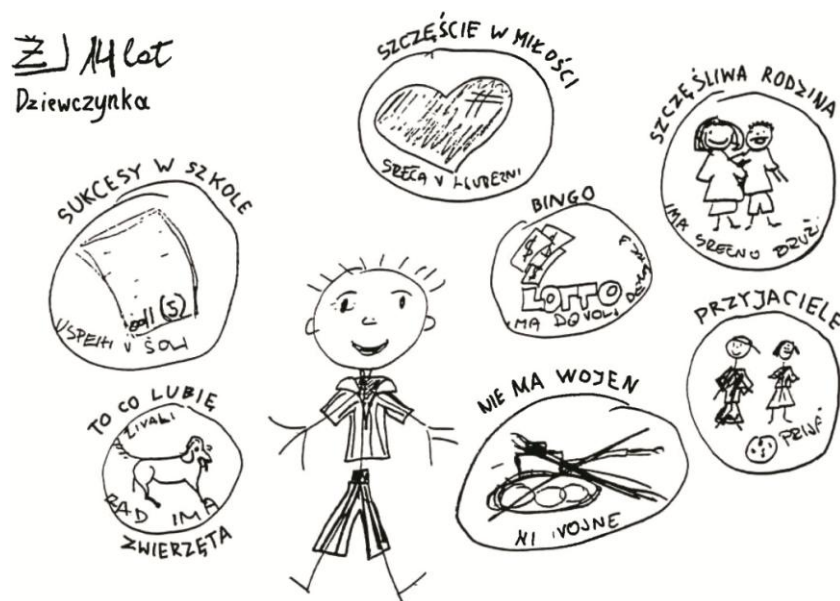 Ž 14 lat
Dziewczynka
SZCZĘŚCIE W MIŁOŚCI
SREČA V LJUBEZNI
SZCZĘŚLIWA RODZINA
IMA SREČNO DRUŽI
SUKCESY W SZKOLE
odl (5)
USPEHI V ŠOLI
BINGO
$
$
$
LOTTO
IMA DOVOLJ
PRZYJACIELE
TO CO LUBIĘ
ŽIVALI
RAD IMA
ZWIERZĘTA
NIE MA WOJEN
NI VOJNE